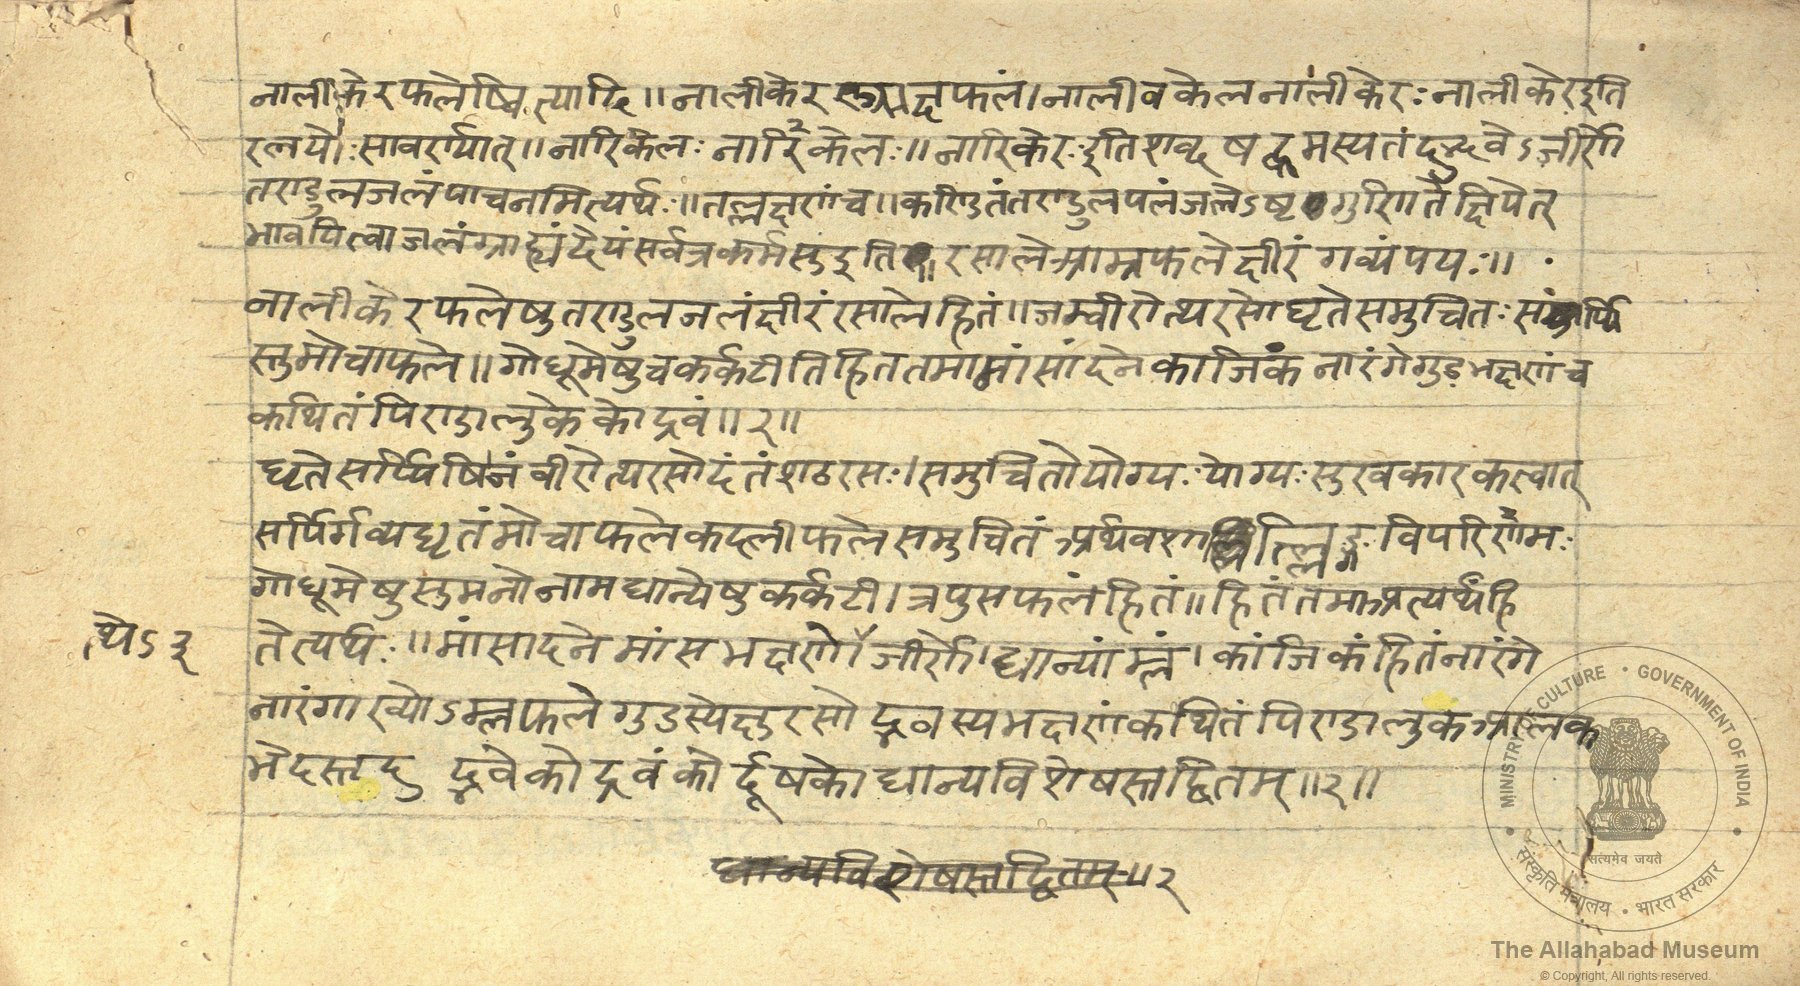 नालीकेरफलेष्वित्यादि॥नालीकेर फलं।नालीवकेलनालीकेरः नालीकेरइति
रलयोः सावर्ण्यात्॥नारिकेलः नारिकेलः॥नारिकेरः इतिशब्द जीर्णे
तण्डुलजलंपाचनमित्यर्थः॥तल्लक्षणंच॥कण्डितंतण्डुलपलंजलेऽष्ट गुणितेक्षिपेत्
भावयित्वाजलंग्राह्यंदेयंसर्वत्रकर्मसुइति रसालेआम्रफलेक्षीरं गव्यंपयः॥
नालीकेरफलेषुतण्डुलजलंक्षीरंरसालेहितं॥जम्वीरोत्थरसोघृतेसमुचितः
स्तुमोचाफले॥गोधूमेषुचकर्कटीतिहिततमामांसादनेकाजिकं नारंगेगुडभक्षणंच
कथितंपिण्डालुकेकोद्रवं॥२॥
घृतेसर्प्पिषिजंवीरोत्थरसोदंतंशठरसः।समुचितोयोग्यः योग्यः सुखकारकत्वात्
सर्पिर्गव्यघृतंमोचाफलेकदलीफलेसमुचितं विपरिणामः
गोधूमेषुसुमनोनामधान्येषुकर्कटी।त्रपुसफलंहितं॥हितंतमाअत्यर्थंहि
त्थेऽ३
तेत्यर्थः॥मांसादनेमांसभक्षणे जीर्णे।धान्यांम्लं।कांजिकंहितंनारंगे
नारंगाख्योऽम्लफलेगुडस्येक्षुरसो भक्षणंकथितंपिण्डालुकआलुक
भेदस्तदु द्रवेकोद्रवंकोर्दूषकोधान्यविशेषस्तद्धितम्॥२॥
धान्यविशेषस्तद्धितम्॥२
MINISTRY OF CULTURE • GOVERNMENT OF INDIA
सत्यमेव जयते
संस्कृति मंत्रालय • भारत सरकार
The Allahabad Museum
© Copyright, All rights reserved.